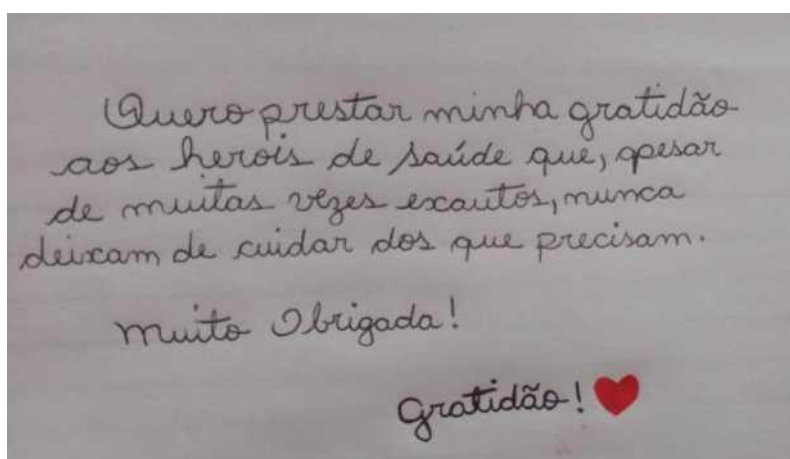 Quero prestar minha gratidão
aos herois de saúde que, apesar
de muitas vezes exautos, nunca
deixam de cuidar dos que precisam.
Muito Obrigada!
Gratidão! ❤